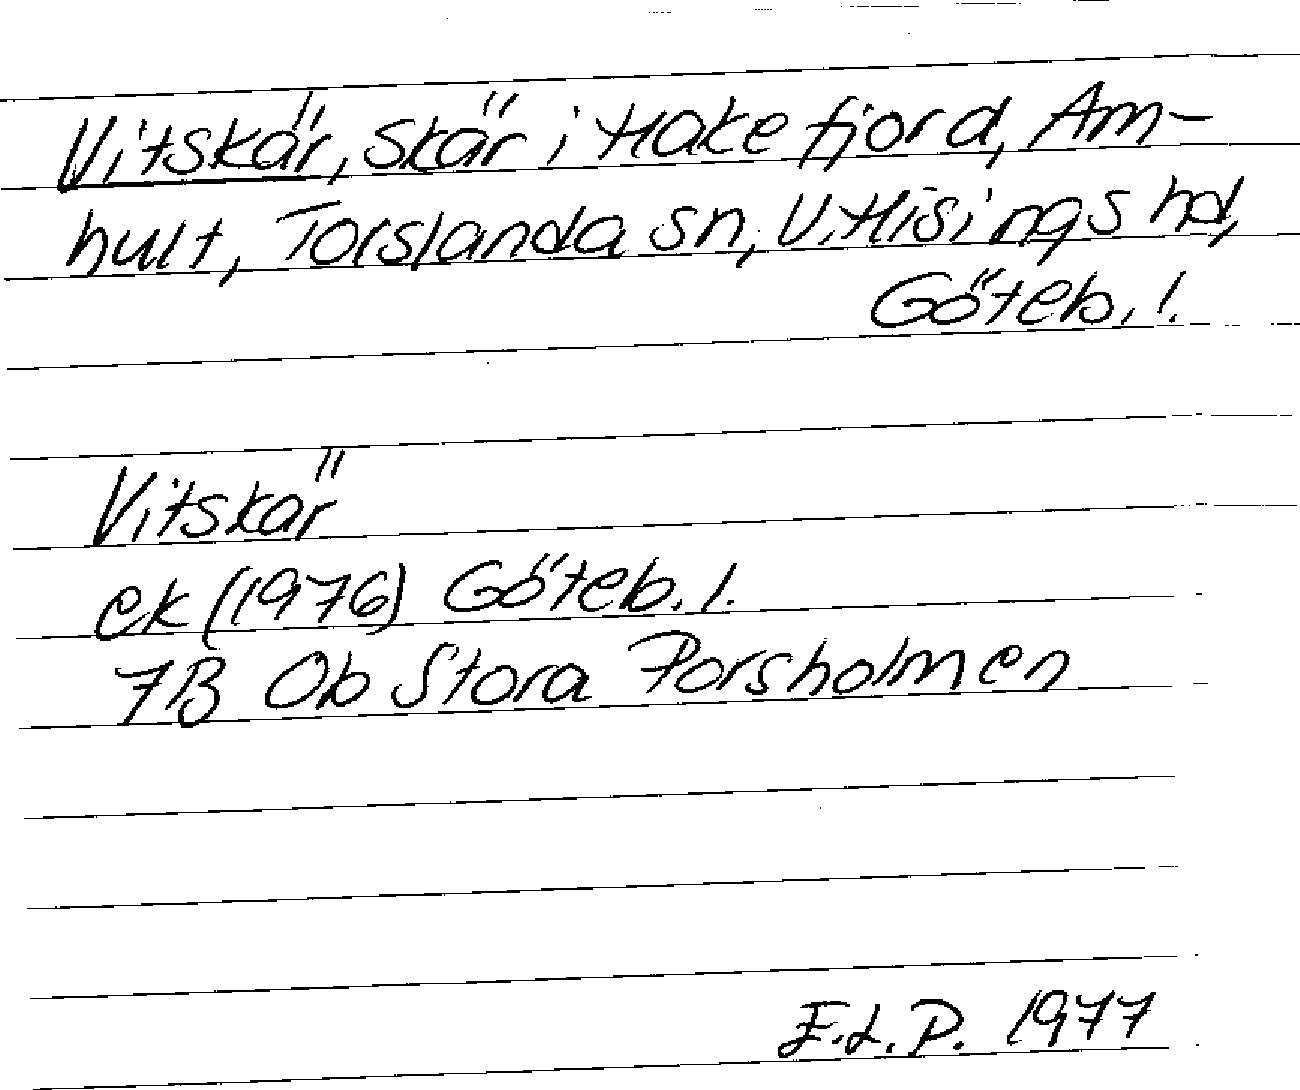 Vitskär, skär i Hake fjord, Am-
hult, Torslanda sn, V. Hisings hd,
Göteb. l.
Vitskär
ek (1976) Göteb. l.
7B Ob Stora Porsholmen
E.L.P. 1977